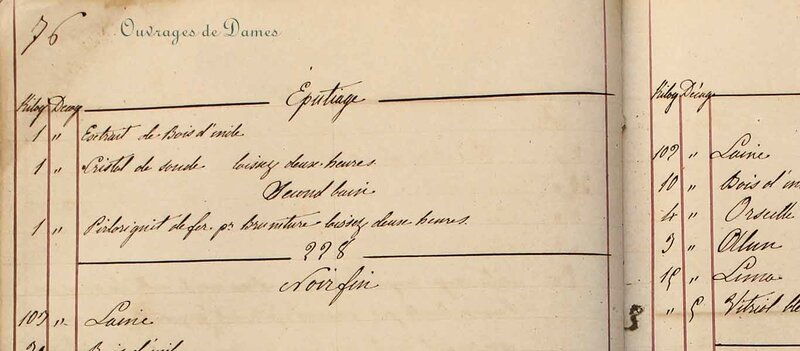 76 Ouvrages de Dames
Kilog Décag Éputiage
1 " Extrait de Bois d'inde
1 " Cristal de soude laissez deux heures
Second bain
1 " de fer pr Bruniture laissez deux heures.
228
Noir fin
103 " Laine
Kilog Décag
102 " Laine
10 " Bois d'in
4 " Orseille
3 " Alun
15 " Lima
" 5 Vitriol ble